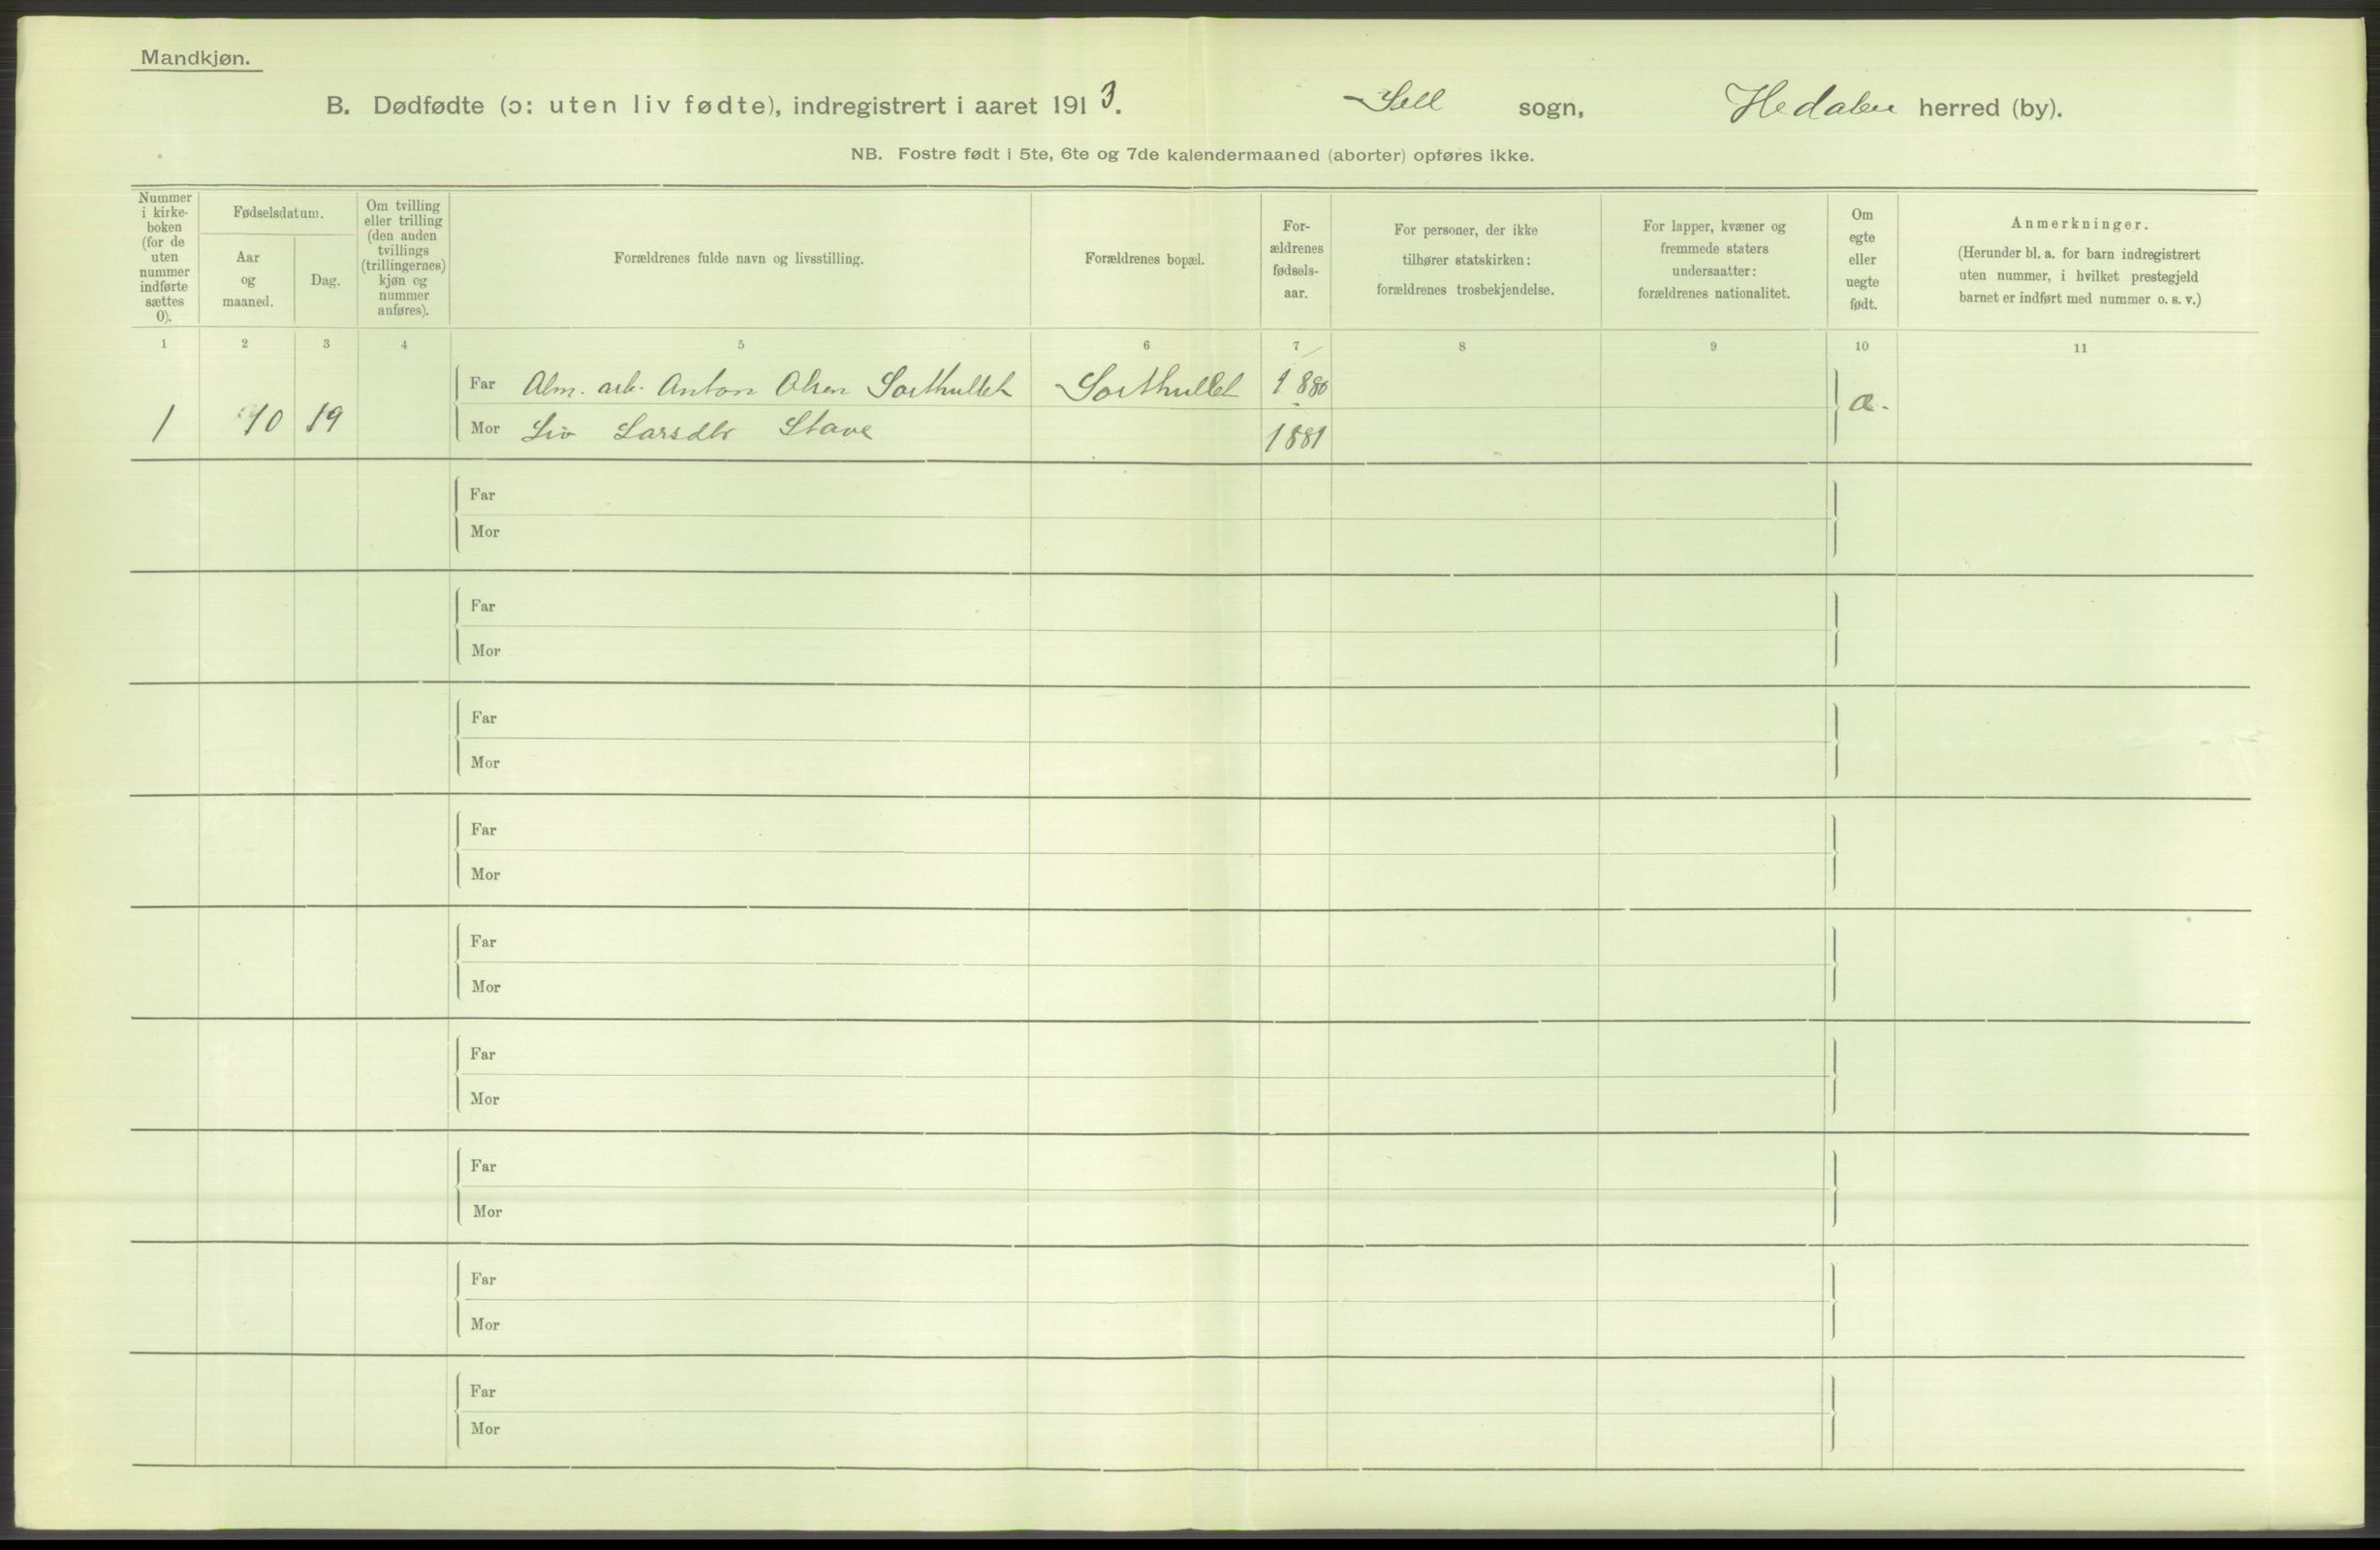 Mandkjøn.
B. Dødfødte (ɔ: uten liv fødte), indregistrert i aaret 1913. Sell sogn, Hedalen herred (by).
NB. Fostre født i 5te, 6te og 7de kalendermaaned (aborter) opføres ikke.
Nummer
i kirke-
boken
(for de
uten
nummer
indførte
sættes
0).
Fødselsdatum.
Aar
og
maaned.
Dag.
Om tvilling
eller trilling
(den anden
tvillings
(trillingernes)
kjøn og
nummer
anføres).
Forældrenes fulde navn og livsstilling.
Forældrenes bopæl.
For-
ældrenes
fødsels-
aar.
For personer, der ikke
tilhører statskirken:
forældrenes trosbekjendelse.
For lapper, kvæner og
fremmede staters
undersaatter:
forældrenes nationalitet.
Om
egte
eller
uegte
født.
Anmerkninger.
(Herunder bl. a. for barn indregistrert
uten nummer, i hvilket prestegjeld
barnet er indført med nummer o. s. v.)
1 2 3 4 5 6 7 8 9 10 11
Far Alm. arb. Anton Olsen Sorthullet Sorthullet 1880
1 10 19 Mor Liv Larsdtr Stave 1881 æ.
Far
Mor
Far
Mor
Far
Mor
Far
Mor
Far
Mor
Far
Mor
Far
Mor
Far
Mor
Far
Mor